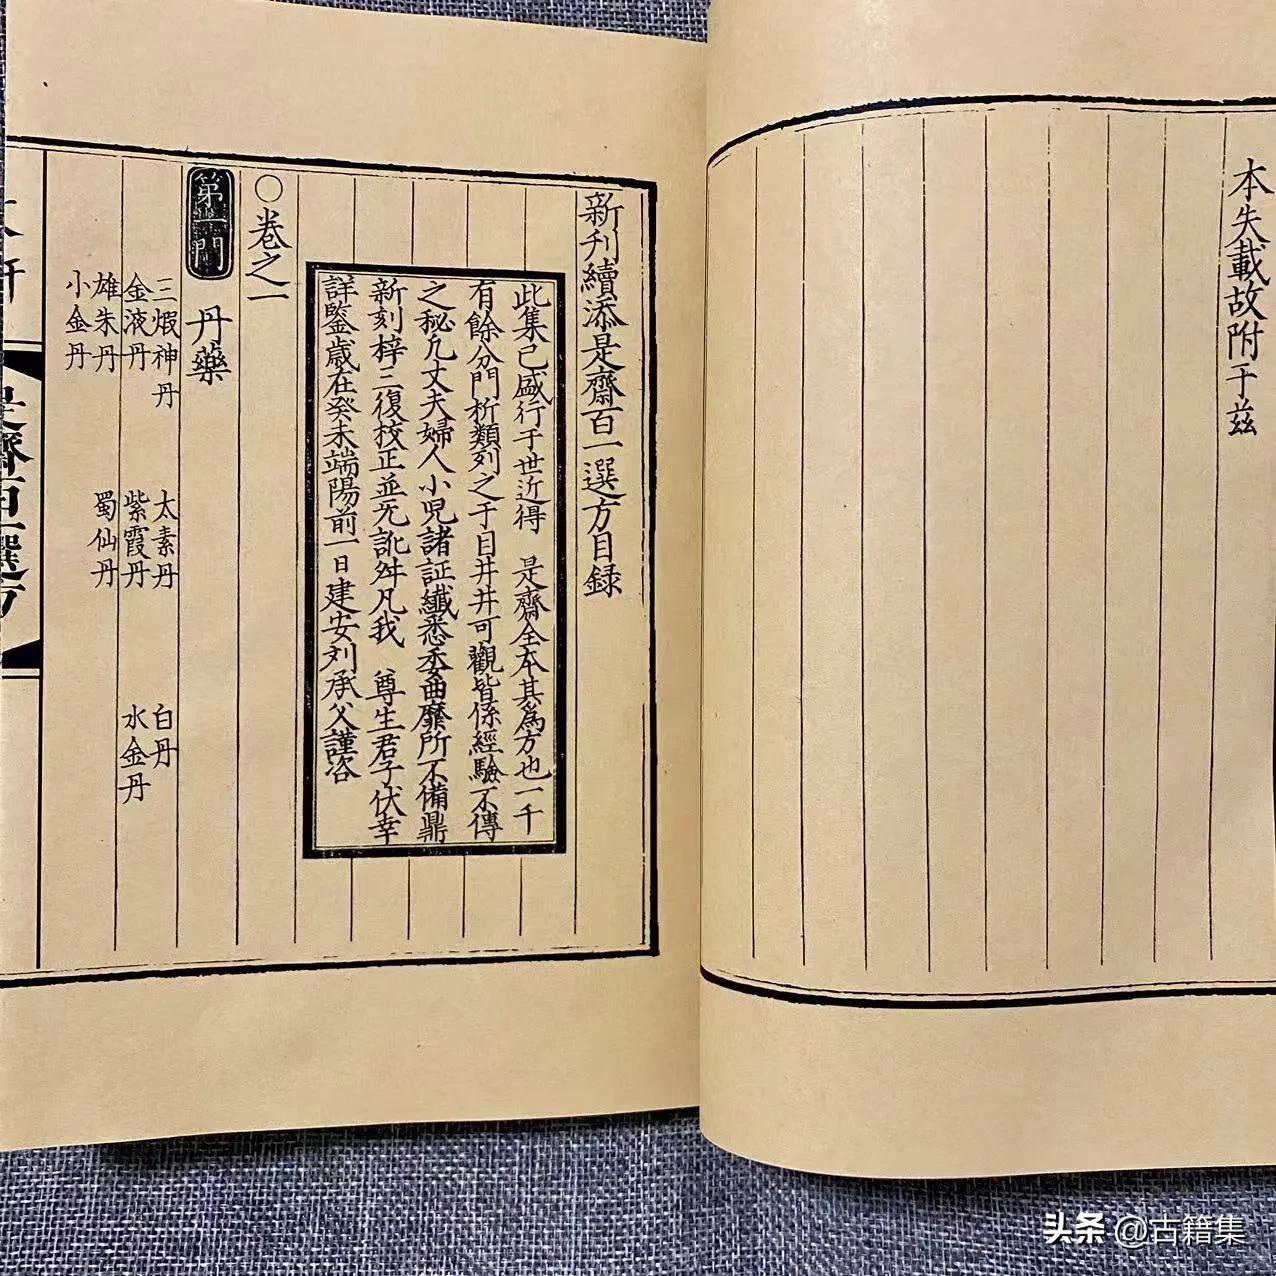 本失載故附于茲
新刋續添是齋百一選方目録
此集已盛行于世近得　是齋全本其為方也一千
有餘分門析類列之于目井井可觀皆係經驗不傳
之秘凢丈夫婦人小児諸証纖悉委曲靡所不備鼎
新刻梓三復校正並旡訛舛凡我　尊生君子伏幸
詳鑒歳在癸未端陽前一日建安刘承父謹咨
○卷之一
第一門　丹藥
三煆神丹　太素丹　白丹
金液丹　紫霞丹　水金丹
雄朱丹　蜀仙丹
小金丹
是齋百一選方
头条 @古籍集